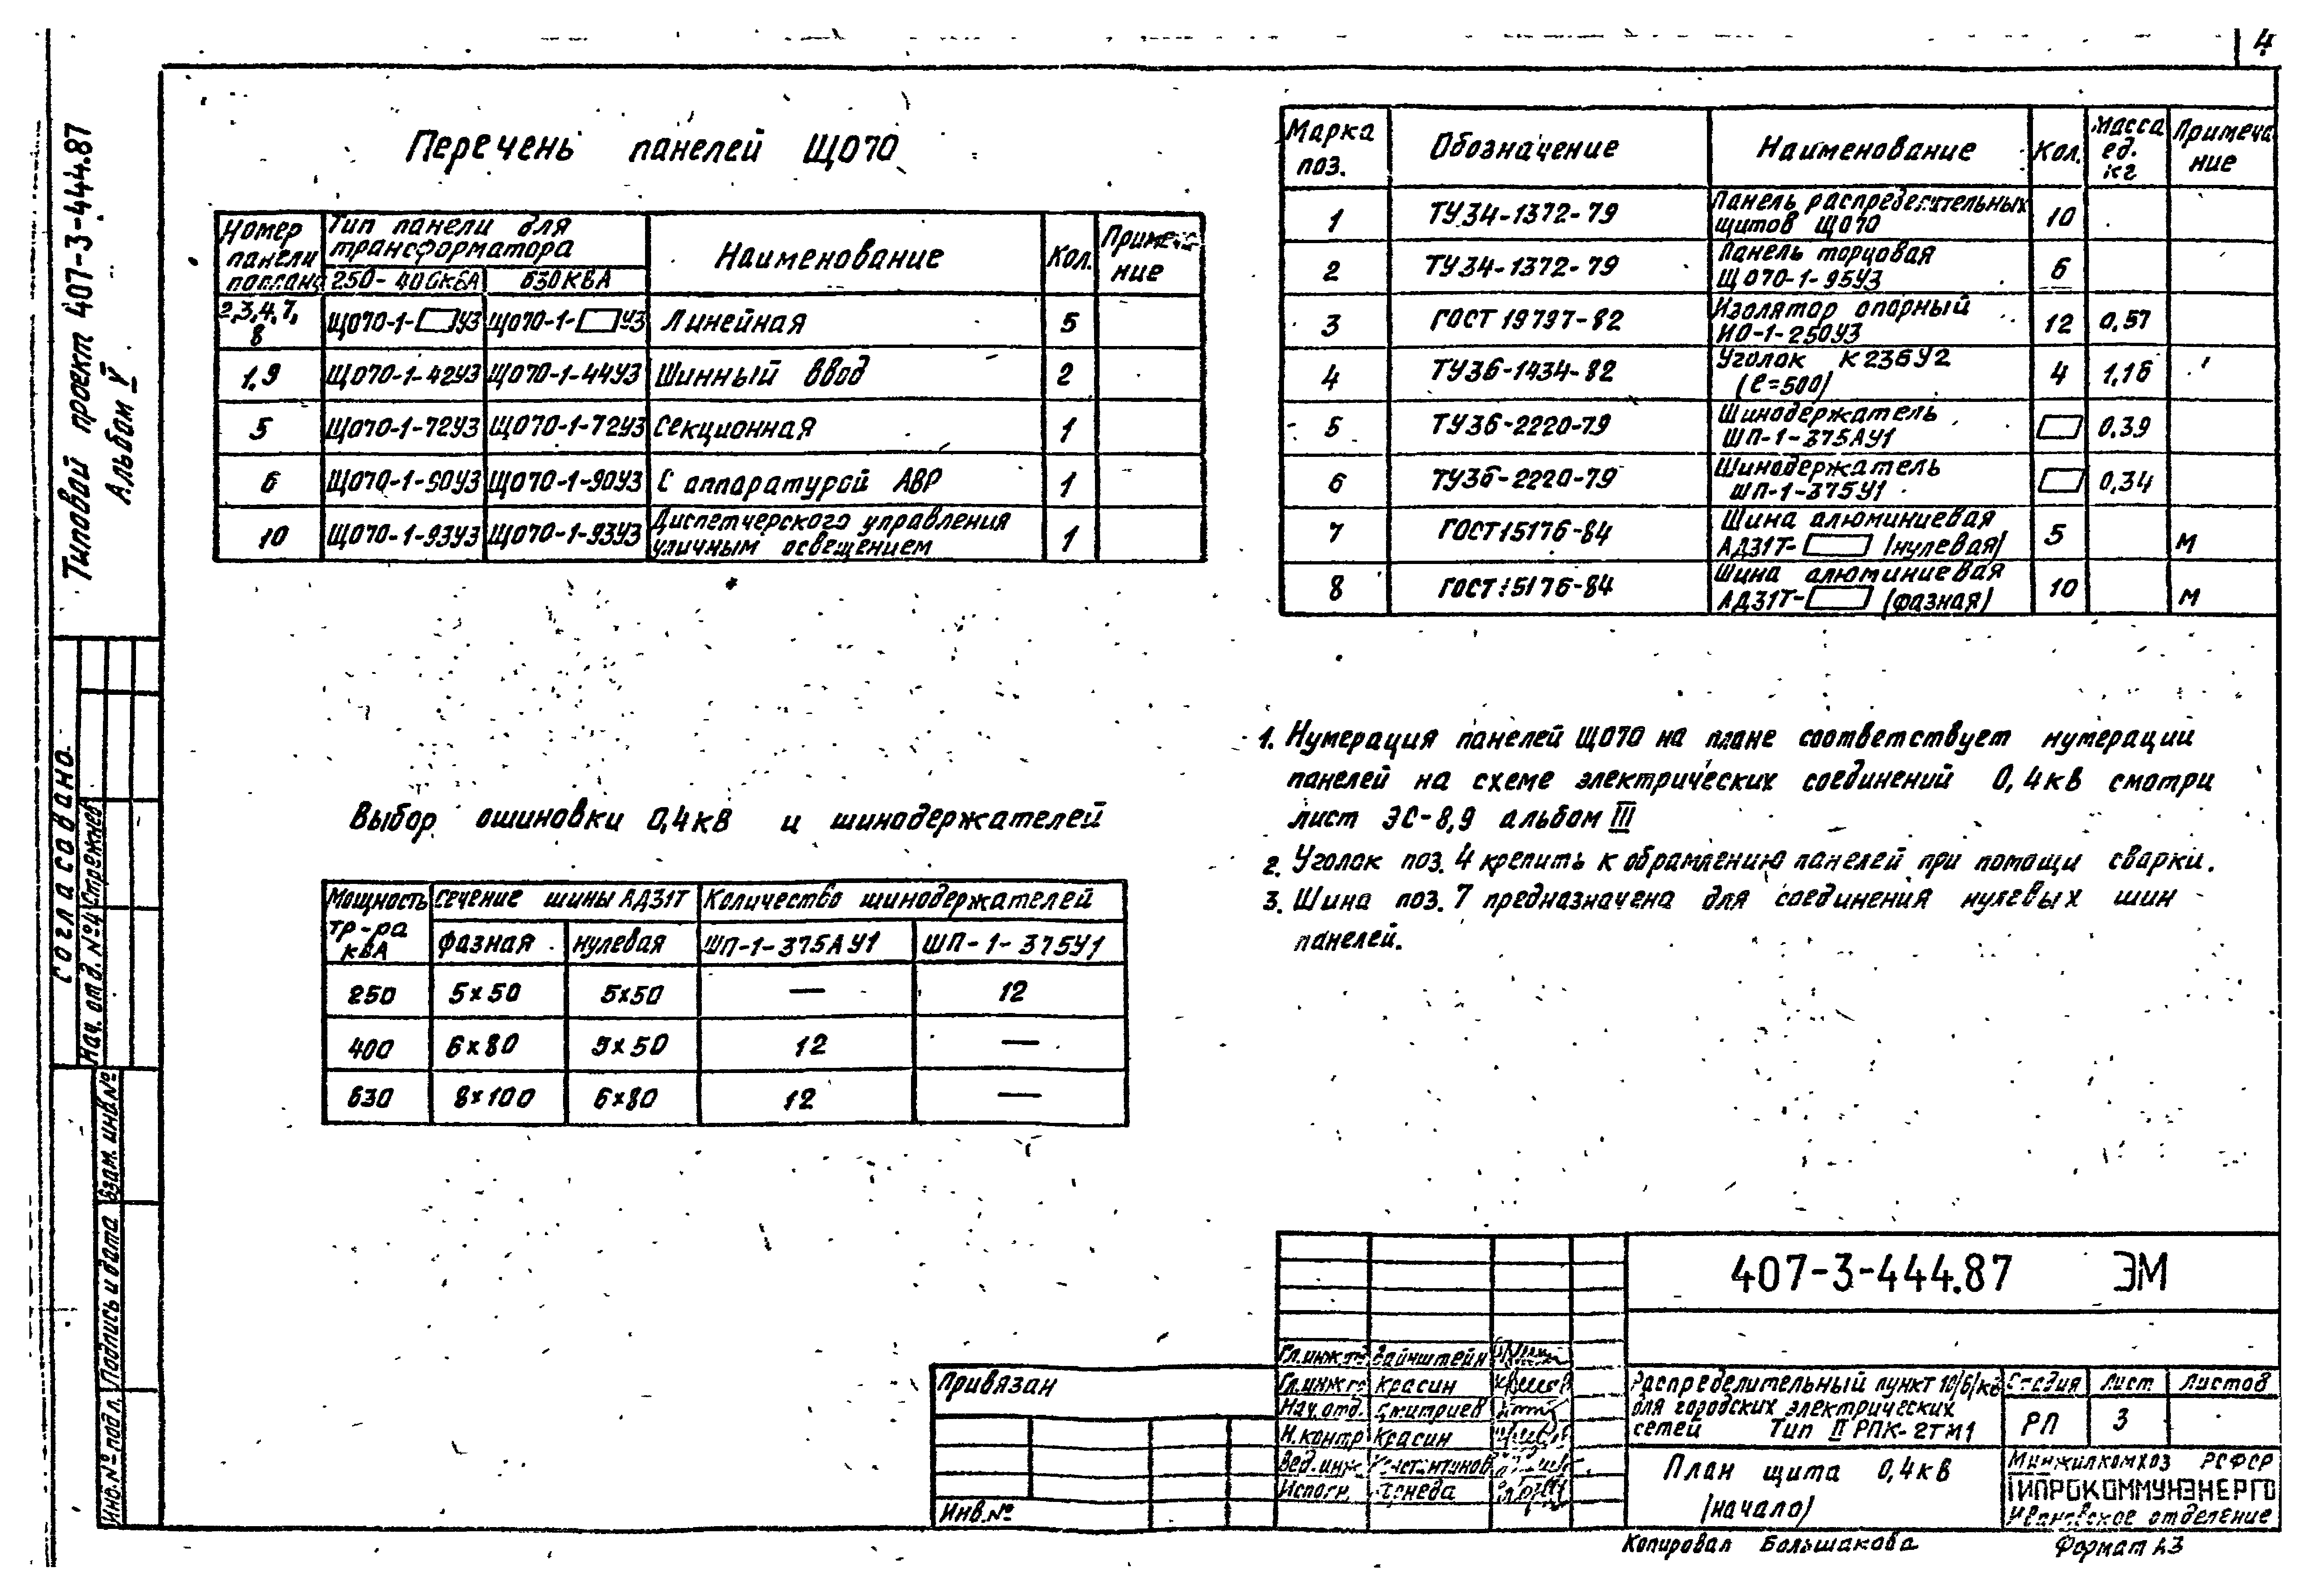 4
Типовой проект 407-3-444.87
Альбом V
Перечень панелей ЩО70
Номер панели по плану | Тип панели для трансформатора | Наименование | Кол. | Примеча ние
250-400кВА | 630кВА
2,3,4,7,8 | ЩО70-1-▭У3 | ЩО70-1-▭У3 | Линейная | 5
1,9 | ЩО70-1-42У3 | ЩО70-1-44У3 | Шинный ввод | 2
5 | ЩО70-1-72У3 | ЩО70-1-72У3 | Секционная | 1
6 | ЩО70-1-90У3 | ЩО70-1-90У3 | С аппаратурой АВР | 1
10 | ЩО70-1-93У3 | ЩО70-1-93У3 | Диспетчерского управления уличным освещением | 1
Марка поз. | Обозначение | Наименование | Кол. | Масса ед. кг | Примеча ние
1 | ТУ34-1372-79 | Панель распределительных щитов ЩО70 | 10
2 | ТУ34-1372-79 | Панель торцовая ЩО70-1-95У3 | 6
3 | ГОСТ 19797-82 | Изолятор опорный ИО-1-250У3 | 12 | 0,57
4 | ТУ36-1434-82 | Уголок К236У2 (ℓ=500) | 4 | 1,16
5 | ТУ36-2220-79 | Шинодержатель ШП-1-375АУ1 | ▭ | 0,39
6 | ТУ36-2220-79 | Шинодержатель ШП-1-375У1 | ▭ | 0,34
7 | ГОСТ 15176-84 | Шина алюминиевая АД31Т-▭ (нулевая) | 5 | м
8 | ГОСТ 15176-84 | Шина алюминиевая АД31Т-▭ (фазная) | 10 | м
1. Нумерация панелей ЩО70 на плане соответствует нумерации
панелей на схеме электрических соединений 0,4кВ смотри
лист ЭС-8,9 альбом III
2. Уголок поз. 4 крепить к обрамлению панелей при помощи сварки.
3. Шина поз. 7 предназначена для соединения нулевых шин
панелей.
Выбор ошиновки 0,4кВ и шинодержателей
Мощность тр-ра кВА | Сечение шины АД31Т | Количество шинодержателей
фазная | нулевая | ШП-1-375АУ1 | ШП-1-375У1
250 | 5х50 | 5х50 | — | 12
400 | 6х80 | 5х50 | 12 | —
630 | 8х100 | 6х80 | 12 | —
Согласовано.
Нач. отд. №4 Стрежнев
Взам. инв. №
Подпись и дата
Инв. № подл.
Привязан
Инв. №
Гл. инж.
Гл. инж. Красин
Нач. отд. Дмитриев
Н. контр Красин
Вед. инж. Константинов
Исполн.
407-3-444.87 ЭМ
Распределительный пункт 10(6)кВ
для городских электрических
сетей Тип II РПК-2ТМ1
Стадия | Лист | Листов
РП | 3
План щита 0,4кВ
(начало)
Минжилкомхоз РСФСР
ГИПРОКОММУНЭНЕРГО
Ивановское отделение
Копировал Большакова
Формат А3